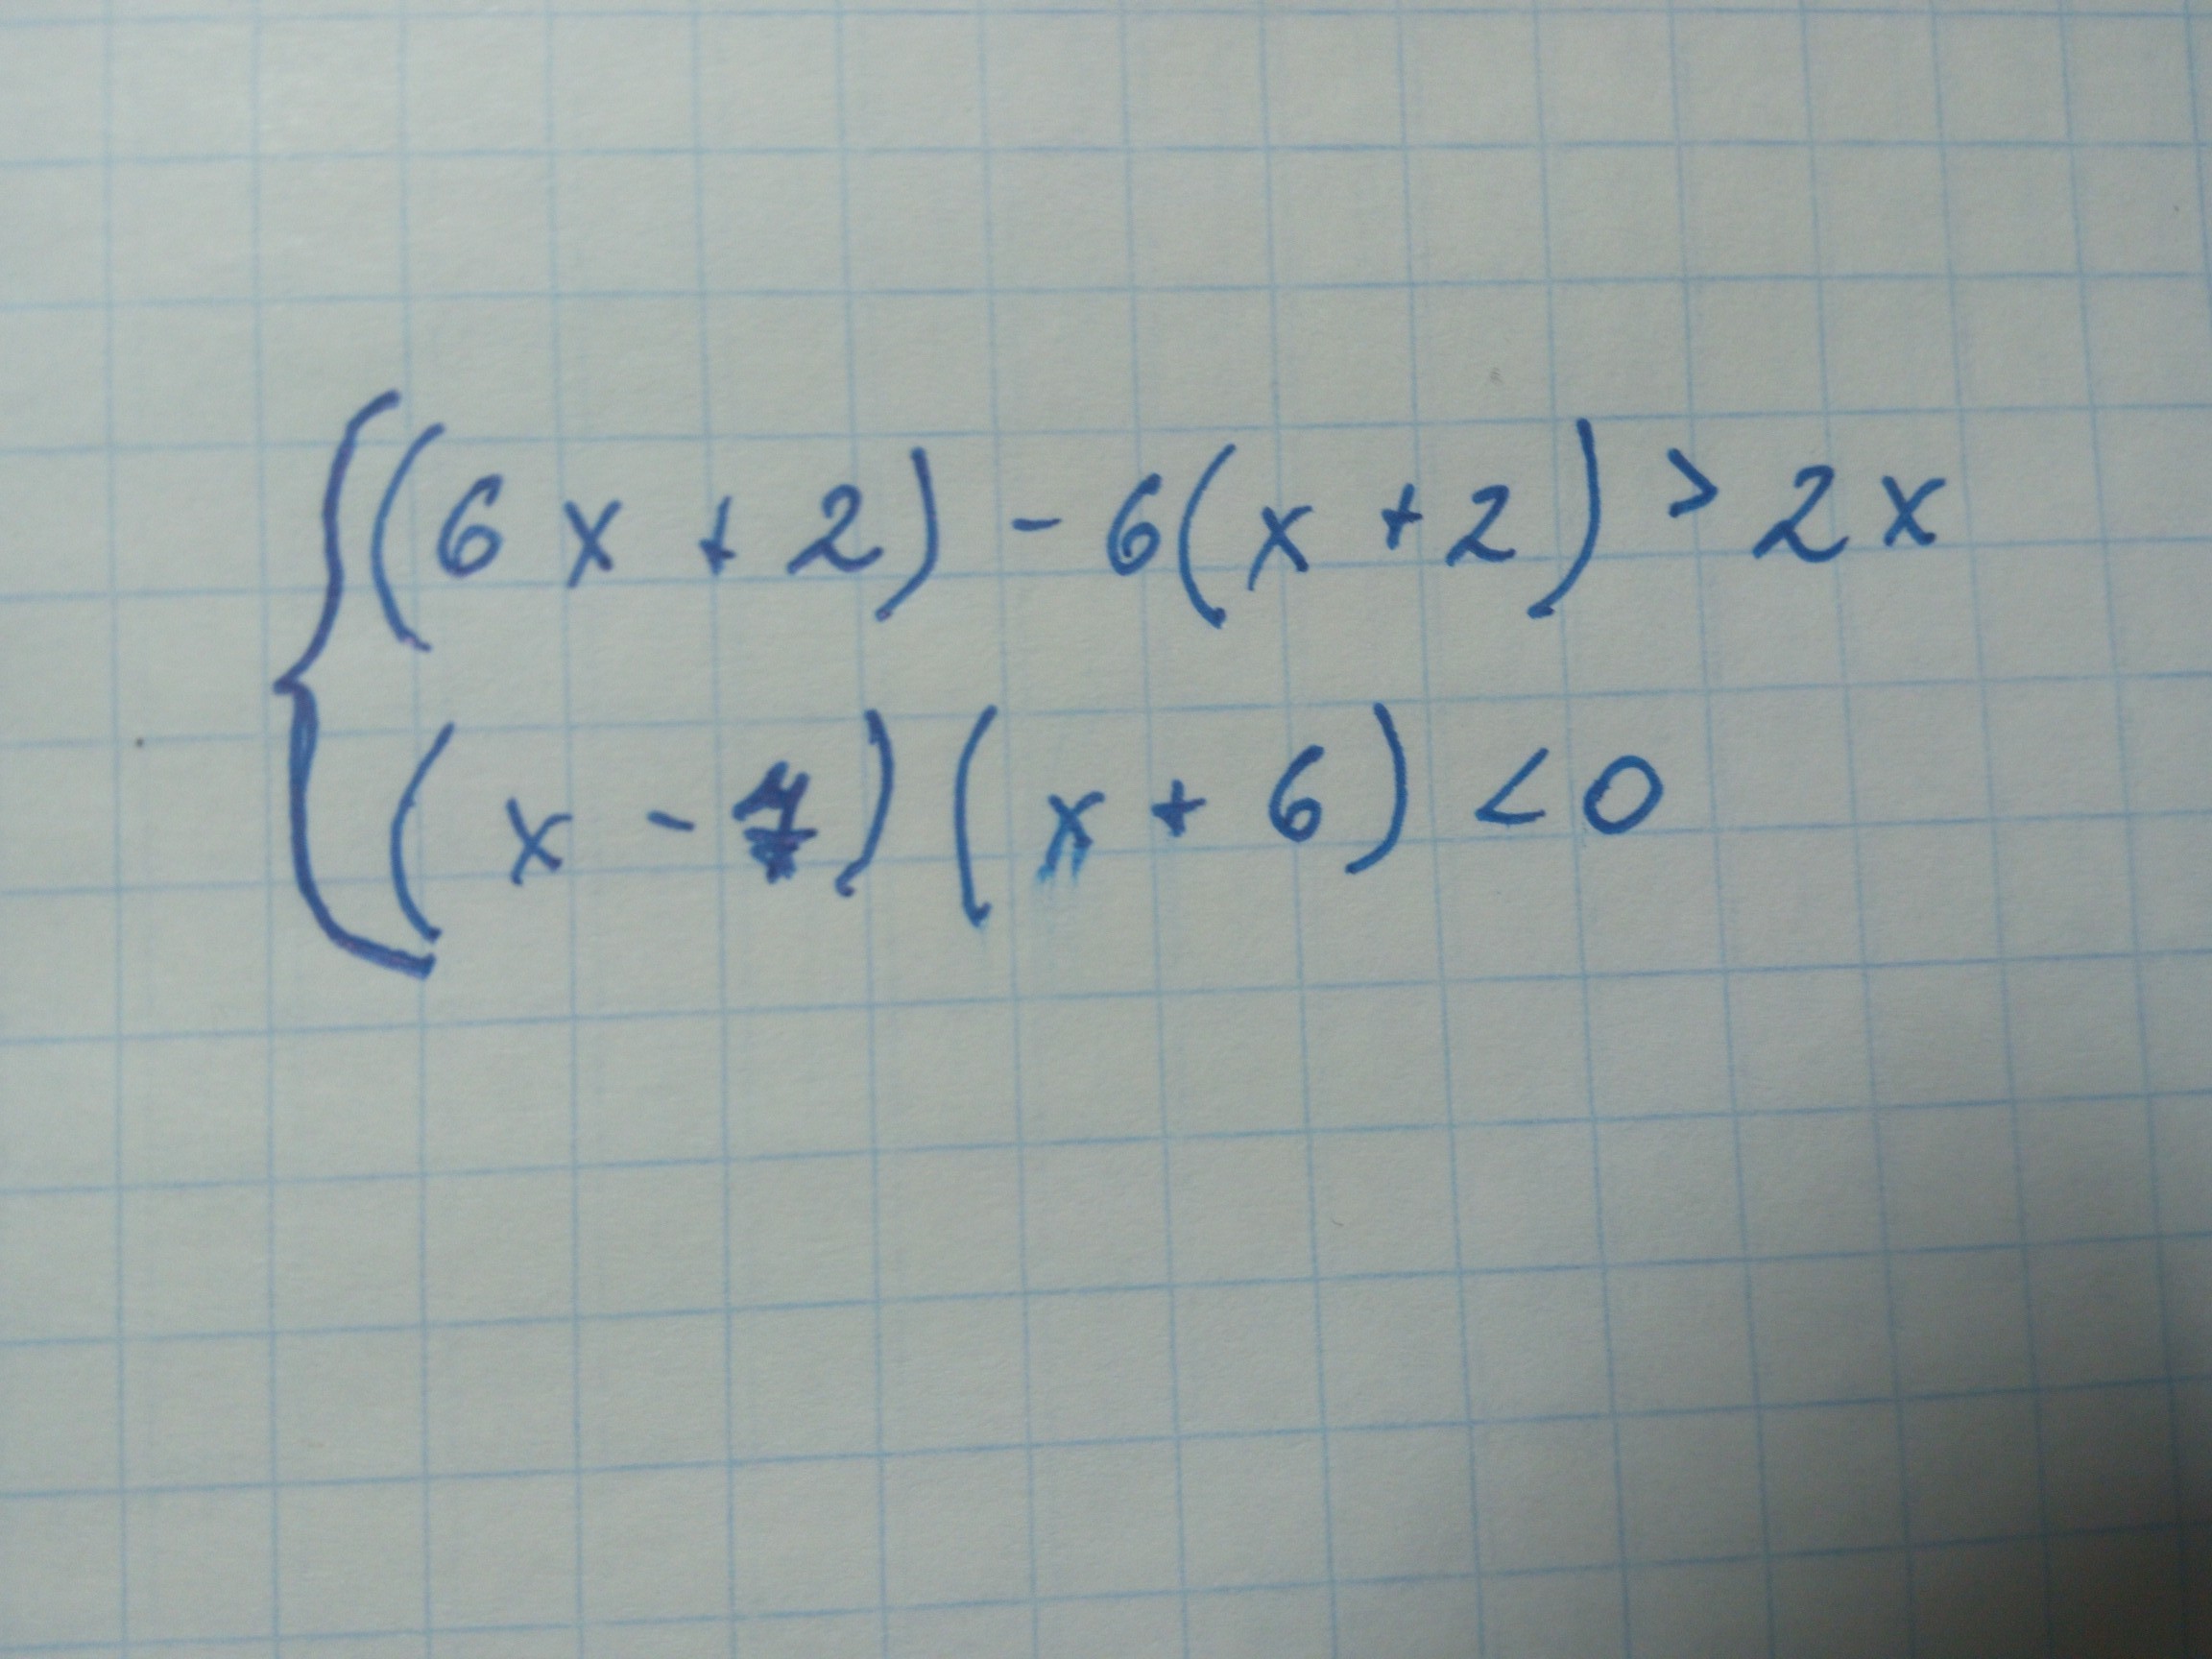 { (6x + 2) - 6(x + 2) > 2x
(x - 7)(x + 6) < 0